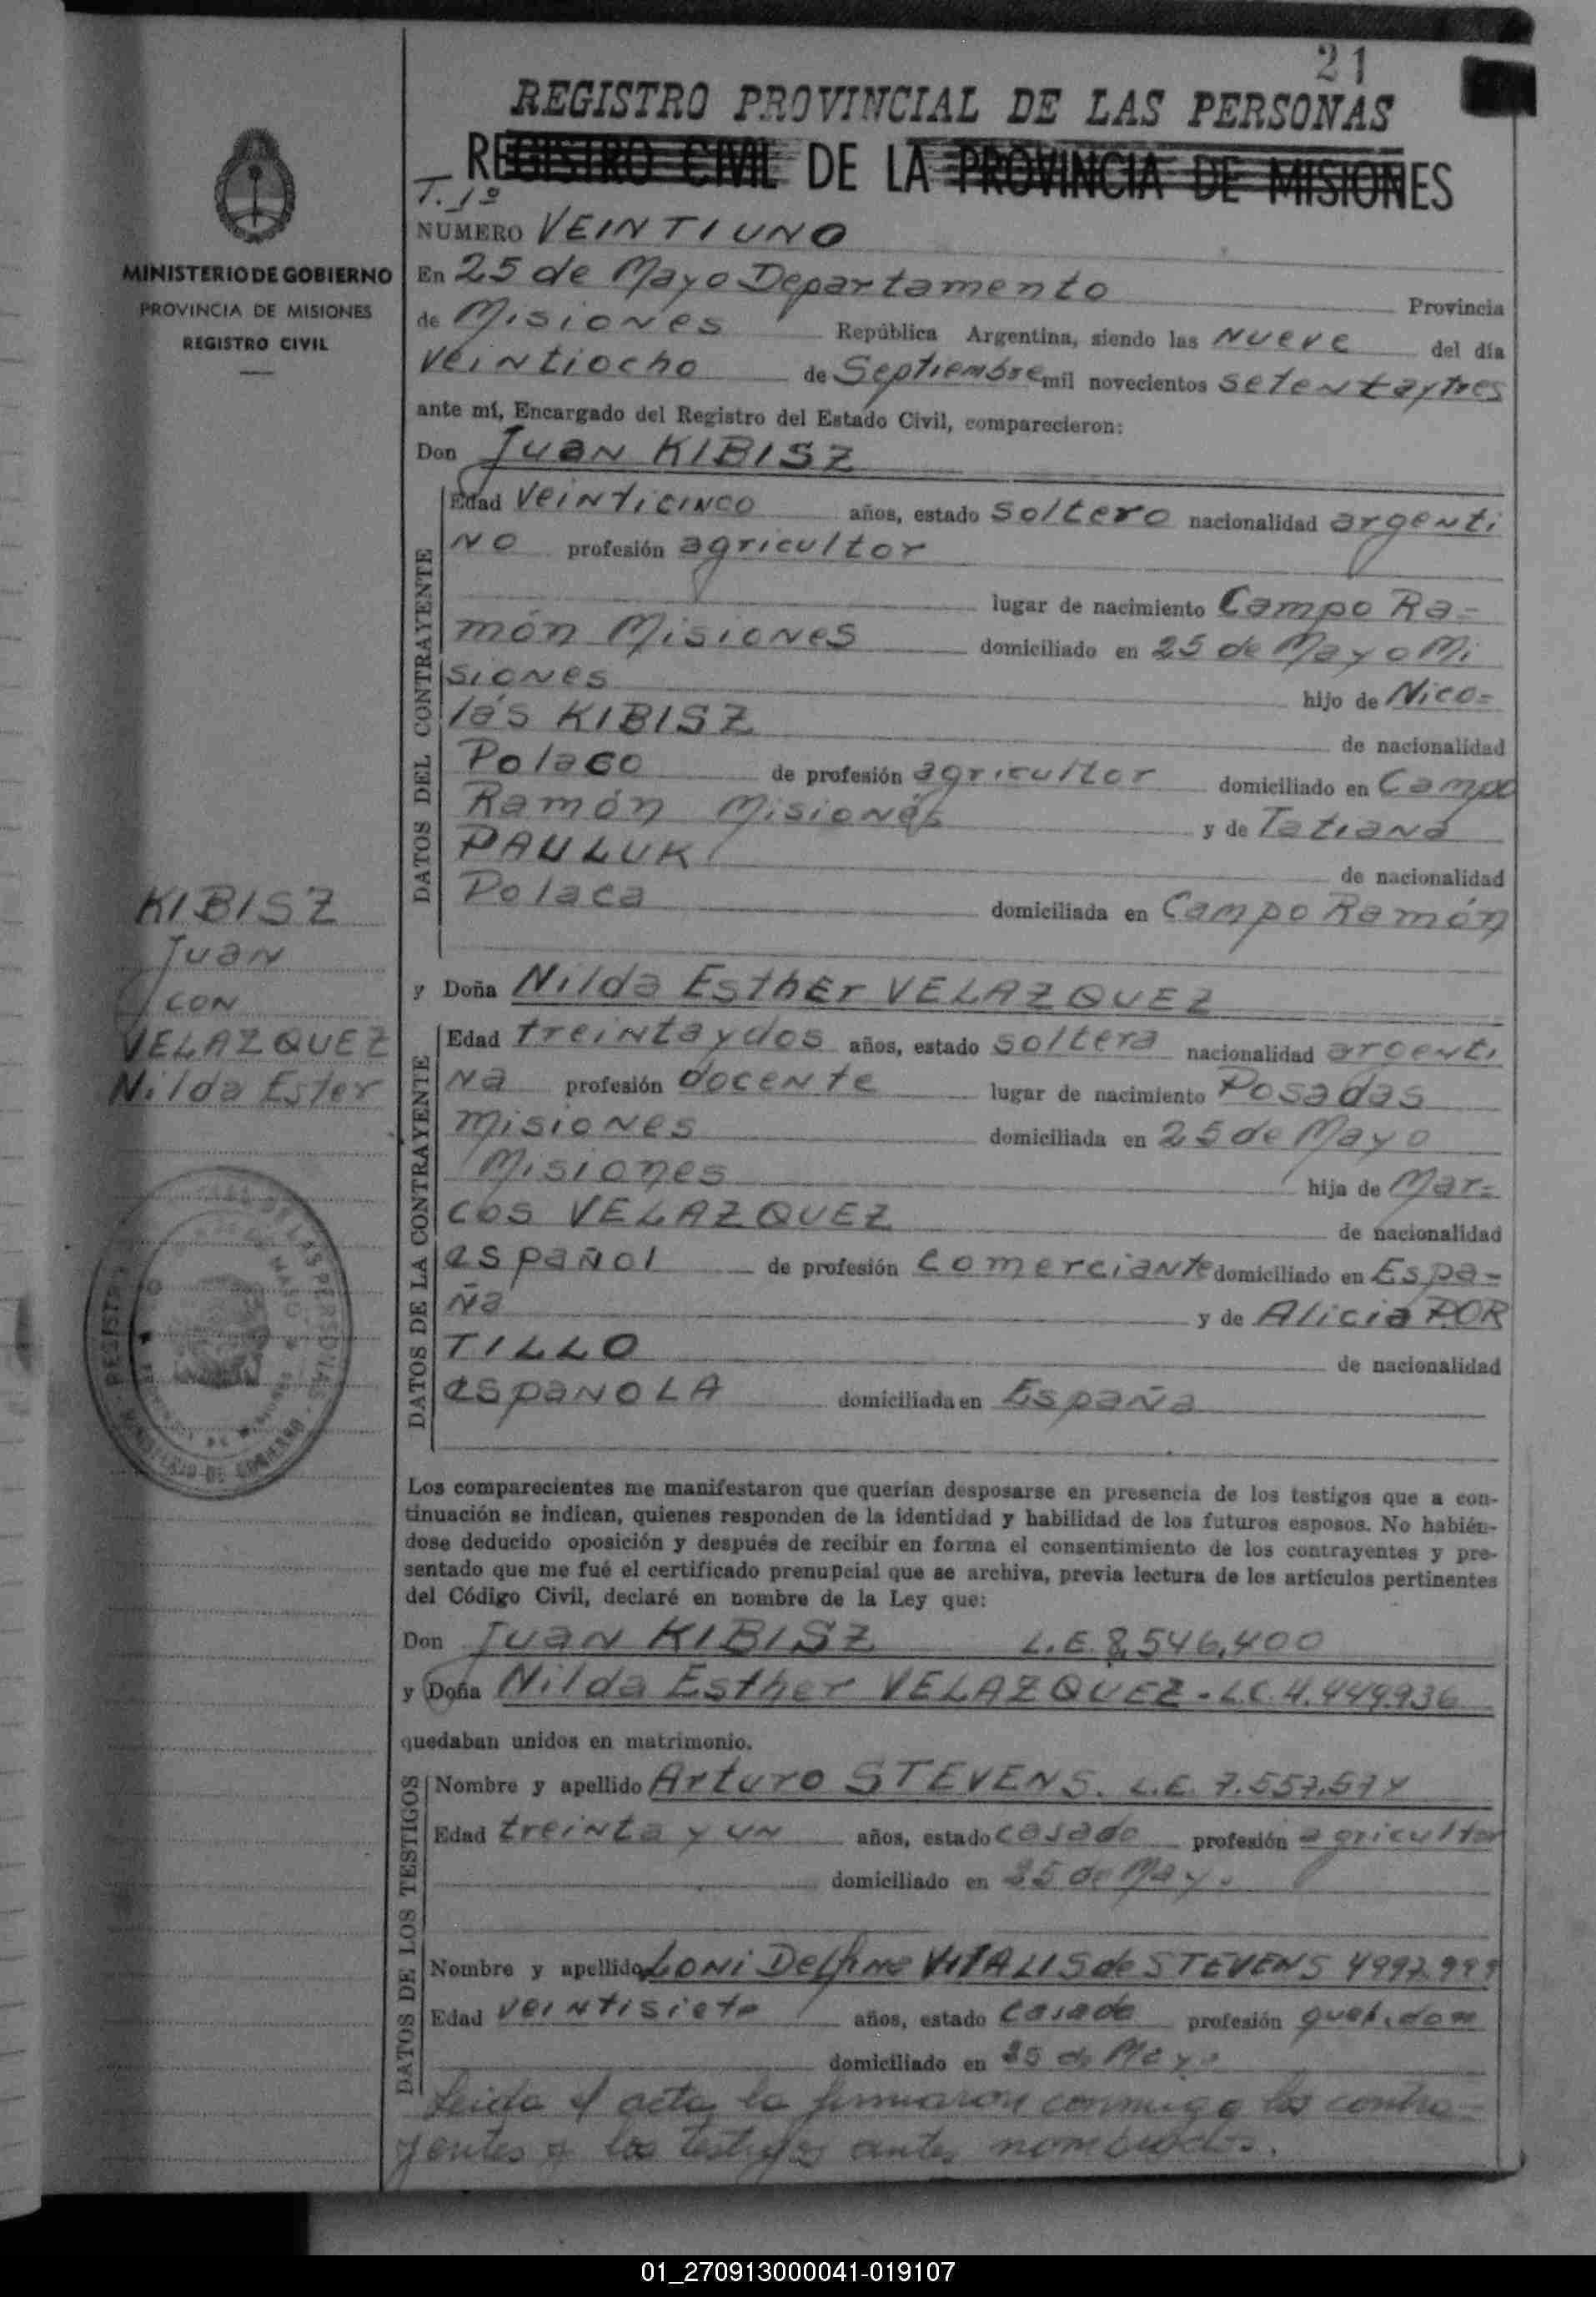 21
REGISTRO PROVINCIAL DE LAS PERSONAS
REGISTRO CIVIL DE LA PROVINCIA DE MISIONES
T. 1º
MINISTERIO DE GOBIERNO
PROVINCIA DE MISIONES
REGISTRO CIVIL
NUMERO VEINTIUNO
En 25 de Mayo Departamento Provincia
de Misiones República Argentina, siendo las Nueve del día
Veintiocho de Septiembre mil novecientos setentaytres
ante mí, Encargado del Registro del Estado Civil, comparecieron:
Don Juan KIBISZ
DATOS DEL CONTRAYENTE
Edad Veinticinco años, estado Soltero nacionalidad argenti
No profesión agricultor
lugar de nacimiento Campo Ra=
món Misiones domiciliado en 25 de Mayo Mi
siones hijo de Nico=
lás KIBISZ de nacionalidad
Polaco de profesión agricultor domiciliado en Campo
Ramón Misiones y de Tatiana
PAULUK de nacionalidad
Polaca domiciliada en Campo Ramón
KIBISZ
Juan
CON
VELAZQUEZ
Nilda Ester
y Doña Nilda Esther VELAZQUEZ
DATOS DE LA CONTRAYENTE
Edad treintaydos años, estado Soltera nacionalidad argenti
Na profesión docente lugar de nacimiento Posadas
Misiones domiciliada en 25 de Mayo
Misiones hija de Mar=
cos VELAZQUEZ de nacionalidad
español de profesión Comerciante domiciliado en Espa=
Ña y de Alicia POR
TILLO de nacionalidad
espanola domiciliada en España
Los comparecientes me manifestaron que querían desposarse en presencia de los testigos que a con-
tinuación se indican, quienes responden de la identidad y habilidad de los futuros esposos. No habién-
dose deducido oposición y después de recibir en forma el consentimiento de los contrayentes y pre-
sentado que me fué el certificado prenupcial que se archiva, previa lectura de los artículos pertinentes
del Código Civil, declaré en nombre de la Ley que:
Don Juan KIBISZ L.E. 8,546,400
y Doña Nilda Esther VELAZQUEZ - L.C. 4.449.936
quedaban unidos en matrimonio.
DATOS DE LOS TESTIGOS
Nombre y apellido Arturo STEVENS. L.E. 7.557.574
Edad treinta y un años, estado casado profesión agricultor
domiciliado en 25 de Mayo
Nombre y apellido LONI Delfina VITALIS de STEVENS
Edad veintisiete años, estado casada profesión queh. dom
domiciliado en 25 de Mayo
Leida el acta la firmaron conmigo los contra=
yentes y los testigos antes nombrados.
01_270913000041-019107